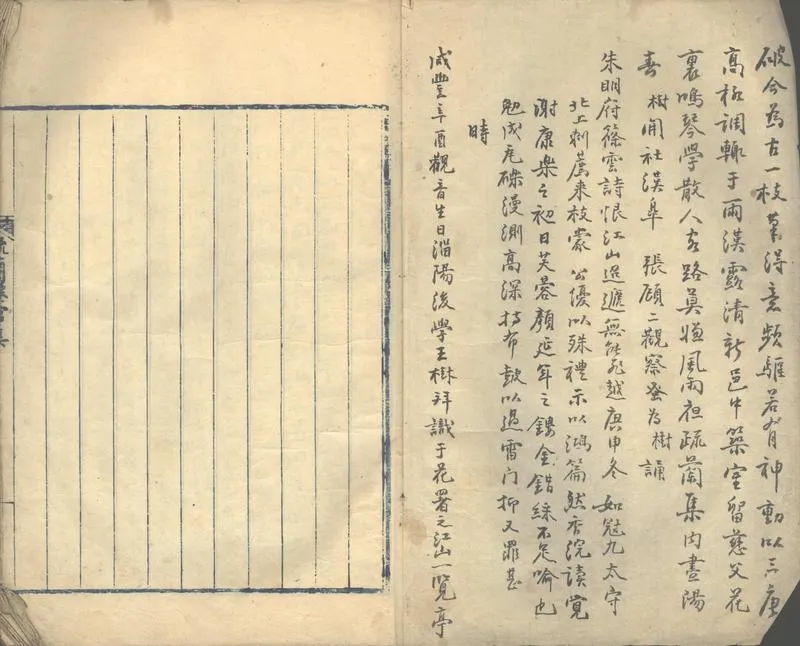 今為古一枝筆得意頻驅若有神動以三唐
高格調輙于兩漢露清新邑中築室留慈父花
裏鳴琴學散人客路莫慊風雨疏蘭集内盡陽
春 樹開社漢皋 張顧二觀察為樹誦
朱明府篠雲詩恨江山迢遞無能飛越庚申冬 如冠九太守
北上刺薦來枝蒙 公優以殊禮示以鴻篇然香浣讀覺
謝康樂之初日芙蓉顏延年之鏤金錯綵不足喻也
勉成瓦礫漫測高深持布鼓以過雷门抑又罪甚
時
咸豐辛酉觀音生日淄陽後學王樹拜識于花署之江山一覽亭